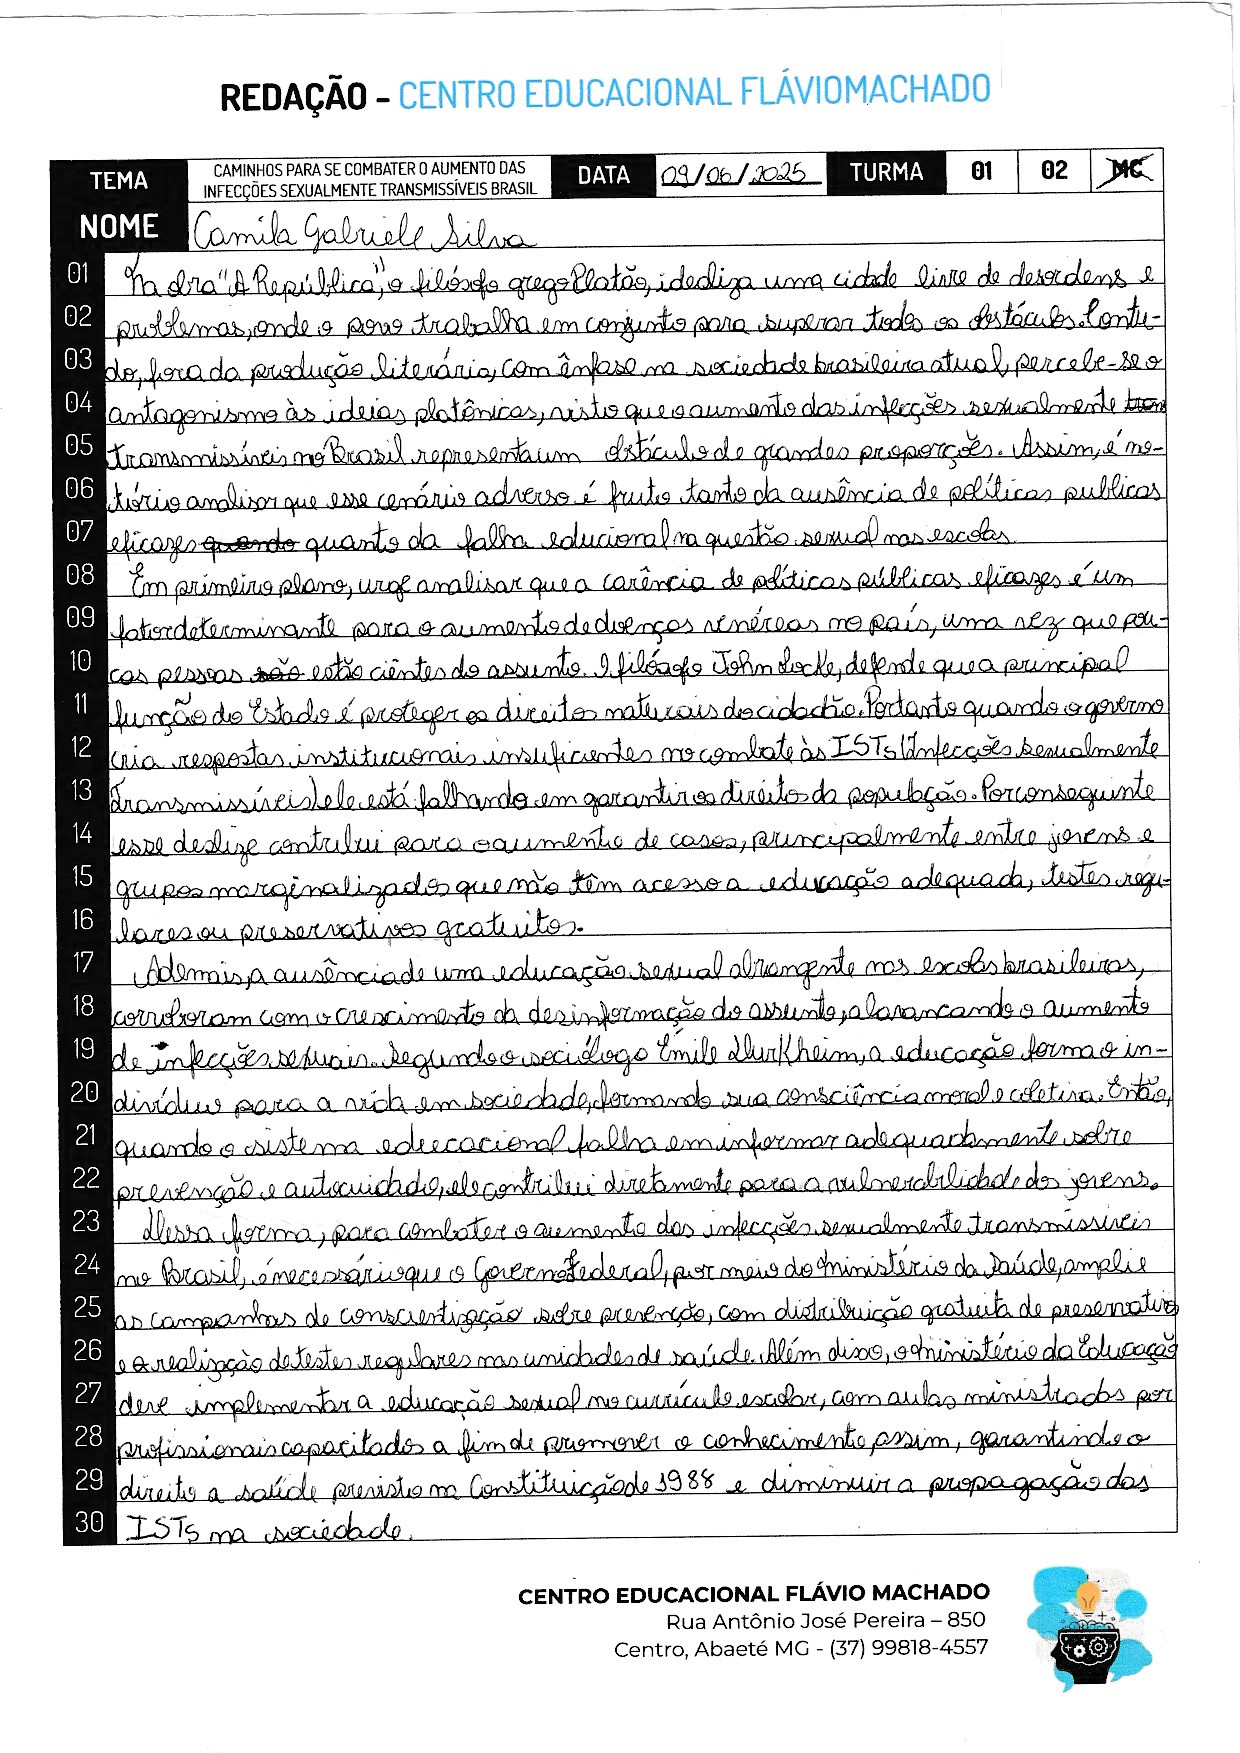 REDAÇÃO - CENTRO EDUCACIONAL FLÁVIOMACHADO
TEMA CAMINHOS PARA SE COMBATER O AUMENTO DAS INFECÇÕES SEXUALMENTE TRANSMISSÍVEIS BRASIL DATA 09/06/2025 TURMA 01 02 MC
NOME Camila Gabriele Silva
01 Na obra "A República", o filósofo grego Platão, idealiza uma cidade livre de desordens e
02 problemas, onde o povo trabalha em conjunto para superar todos os obstáculos. Contu-
03 do, fora da produção literária, com ênfase na sociedade brasileira atual, percebe-se o
04 antagonismo às ideias platônicas, visto que o aumento das infecções sexualmente tran
05 transmissíveis no Brasil representa um obstáculo de grandes proporções. Assim, é no-
06 tório analisar que esse cenário adverso é fruto tanto da ausência de políticas publicas
07 eficazes quando quanto da falha educional na questão sexual nas escolas.
08 Em primeiro plano, urge analisar que a carência de políticas públicas eficazes é um
09 fator determinante para o aumento de doenças venéreas no país, uma vez que pou-
10 cas pessoas são estão ciêntes do assunto. O filósofo John Locke, defende que a principal
11 função do Estado é proteger os direitos naturais do cidadão. Portanto quando o governo
12 cria respostas institucionais insuficientes no combate às ISTs (Infecções Sexualmente
13 Transmissíveis) ele está falhando em garantir os direitos da população. Por conseguinte
14 esse deslize contribui para o aumento de casos, principalmente entre jovens e
15 grupos marginalizados que não têm acesso a educação adequada, testes regu-
16 lares ou preservativos gratuitos.
17 Ademais, a ausência de uma educação sexual abrangente nas escolas brasileiras,
18 corroboram com o crescimento da desinformação do assunto, alavancando o aumento
19 de infecções sexuais. Segundo o sociólogo Émile Durkheim, a educação forma o in-
20 divíduo para a vida em sociedade, formando sua consciência moral e coletiva. Então,
21 quando o sistema educacional falha em informar adequadamente sobre
22 prevenção e autocuidado, ele contribui diretamente para a vulnerabilidade dos jovens.
23 Dessa forma, para combater o aumento das infecções sexualmente transmissíveis
24 no Brasil, é necessário que o Governo Federal, por meio do Ministério da Saúde, amplie
25 as campanhas de conscientização sobre prevenção, com distribuição gratuita de preservativo
26 e a realização de testes regulares nas unidades de saúde. Além disso, o Ministério da Educação
27 deve implementar a educação sexual no currículo escolar, com aulas ministradas por
28 profissionais capacitados a fim de promover o conhecimento, assim, garantindo o
29 direito a saúde previsto na Constituição de 1988 e diminuir a propagação das
30 ISTs na sociedade.
CENTRO EDUCACIONAL FLÁVIO MACHADO
Rua Antônio José Pereira – 850
Centro, Abaeté MG - (37) 99818-4557